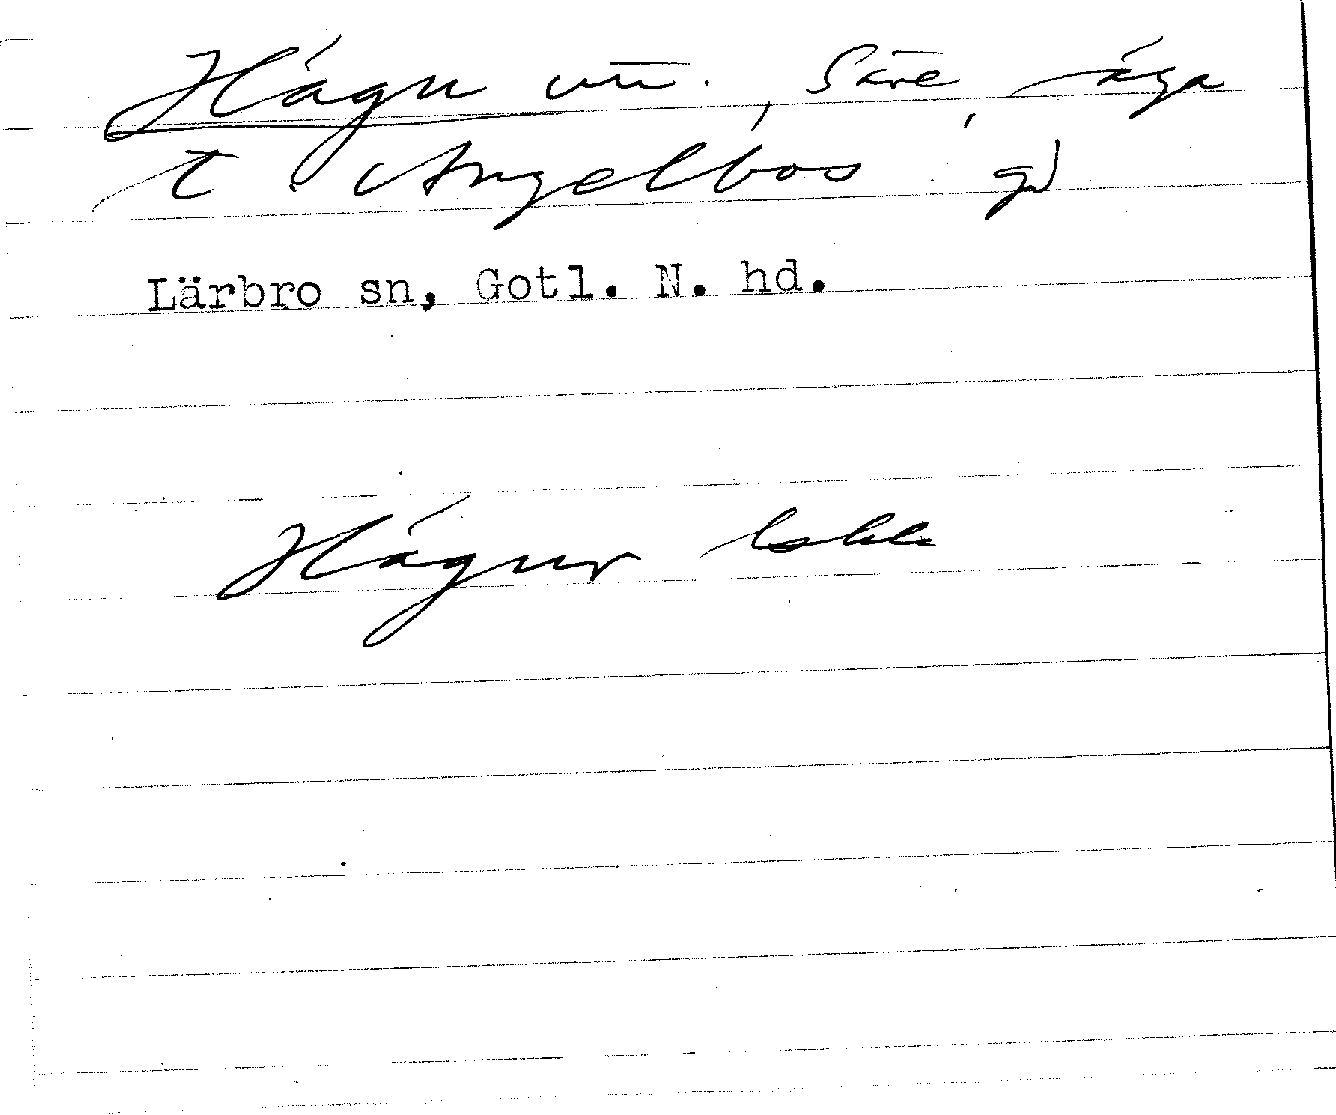 Hágu un., Säre, äga
t. Angelbos gd
Lärbro sn, Gotl. N. hd.
Hágur